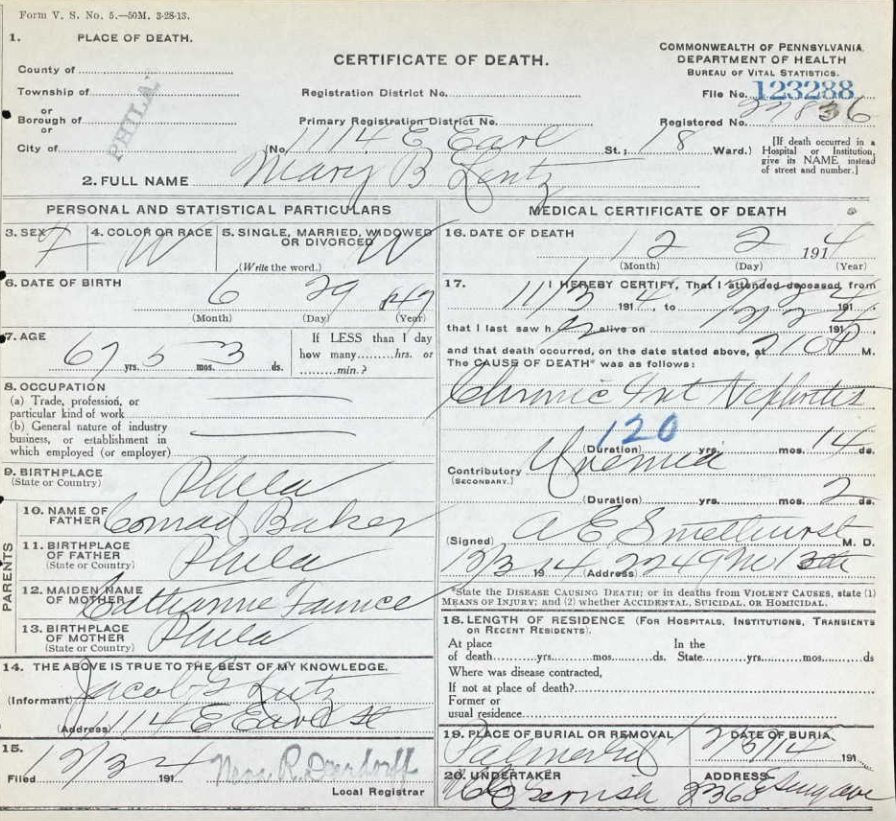 Form V. S. No. 5.—50M. 3-28-13.
1. PLACE OF DEATH.
County of
Township of
or
Borough of
or
City of
PHILA.
CERTIFICATE OF DEATH.
Registration District No.
Primary Registration District No.
COMMONWEALTH OF PENNSYLVANIA
DEPARTMENT OF HEALTH
BUREAU OF VITAL STATISTICS.
File No. 123288
Registered No. 27836
(No. 1114 E Earl St.; 18 Ward.)
[If death occurred in a Hospital or Institution, give its NAME instead of street and number.]
2. FULL NAME Mary B Lentz
PERSONAL AND STATISTICAL PARTICULARS
3. SEX F
4. COLOR OR RACE W
5. SINGLE, MARRIED, WIDOWED OR DIVORCED W
(Write the word.)
6. DATE OF BIRTH
6 29 1847
(Month) (Day) (Year)
7. AGE
67 yrs. 5 mos. 3 ds.
If LESS than 1 day
how many hrs. or
min.?
8. OCCUPATION
(a) Trade, profession, or
particular kind of work
(b) General nature of industry
business, or establishment in
which employed (or employer)
9. BIRTHPLACE
(State or Country)
Phila
PARENTS
10. NAME OF FATHER Conrad Baker
11. BIRTHPLACE OF FATHER
(State or Country) Phila
12. MAIDEN NAME OF MOTHER Catharine Faunce
13. BIRTHPLACE OF MOTHER
(State or Country) Phila
14. THE ABOVE IS TRUE TO THE BEST OF MY KNOWLEDGE.
(Informant) Jacob G Lutz
(Address) 1114 E Earl St
15.
Filed 12/3 4 191
Local Registrar
MEDICAL CERTIFICATE OF DEATH
16. DATE OF DEATH
12 2 1914
(Month) (Day) (Year)
17. I HEREBY CERTIFY, That I attended deceased from
11/3 191 4, to 12/2 4 191
that I last saw her alive on 12/2 4 191
and that death occurred, on the date stated above, at 210 P M.
The CAUSE OF DEATH* was as follows:
Chronic Int Nephritis
120
(Duration) yrs. mos. 14 ds.
Contributory Uremia
(SECONDARY.)
(Duration) yrs. mos. 2 ds.
(Signed) A E Smethurst M. D.
12/3 19 14 (Address) 2249 No 13th
*State the DISEASE CAUSING DEATH; or in deaths from VIOLENT CAUSES, state (1)
MEANS OF INJURY; and (2) whether ACCIDENTAL, SUICIDAL, OR HOMICIDAL.
18. LENGTH OF RESIDENCE (FOR HOSPITALS, INSTITUTIONS, TRANSIENTS
OR RECENT RESIDENTS).
At place In the
of death yrs. mos. ds. State yrs. mos. ds
Where was disease contracted,
If not at place of death?
Former or
usual residence
19. PLACE OF BURIAL OR REMOVAL
DATE OF BURIA
191
20. UNDERTAKER
ADDRESS